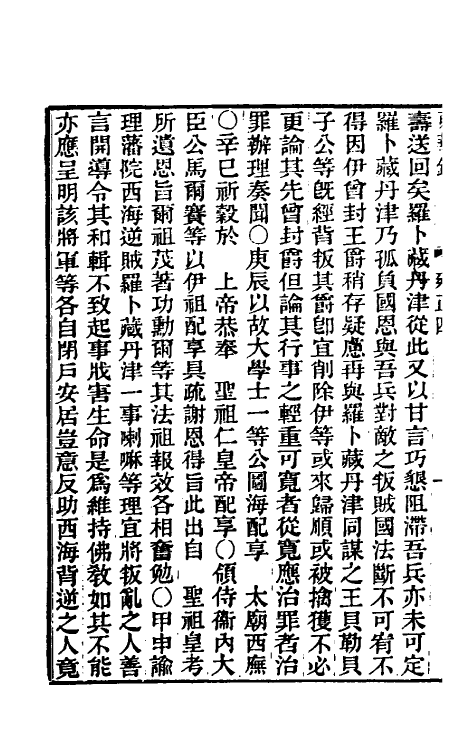 壽送回矣羅卜藏丹津從此又以甘言巧懇阻滯吾兵亦未可定
羅卜藏丹津乃孤負國恩與吾兵對敵之叛賊國法斷不可宥不
得因伊曾封王爵稍存疑慮再與羅卜藏丹津同謀之王貝勒貝
子公等旣經背叛其爵卽宜削除伊等或來歸順或被擒獲不必
更論其先曾封爵但論其行事之輕重可寬者從寬應治罪者治
罪辦理奏聞○庚辰以故大學士一等公圖海配享　太廟西廡
○辛巳祈穀於　上帝恭奉　聖祖仁皇帝配享○領侍衞內大
臣公馬爾賽等以伊祖配享具疏謝恩得旨此出自　聖祖皇考
所遺恩旨爾祖茂著功勳爾等其法祖報效各相奮勉○甲申諭
理藩院西海逆賊羅卜藏丹津一事喇嘛等理宜將叛亂之人善
言開導令其和輯不致起事戕害生命是爲維持佛敎如其不能
亦應呈明該將軍等各自閉戶安居豈意反助西海背逆之人竟